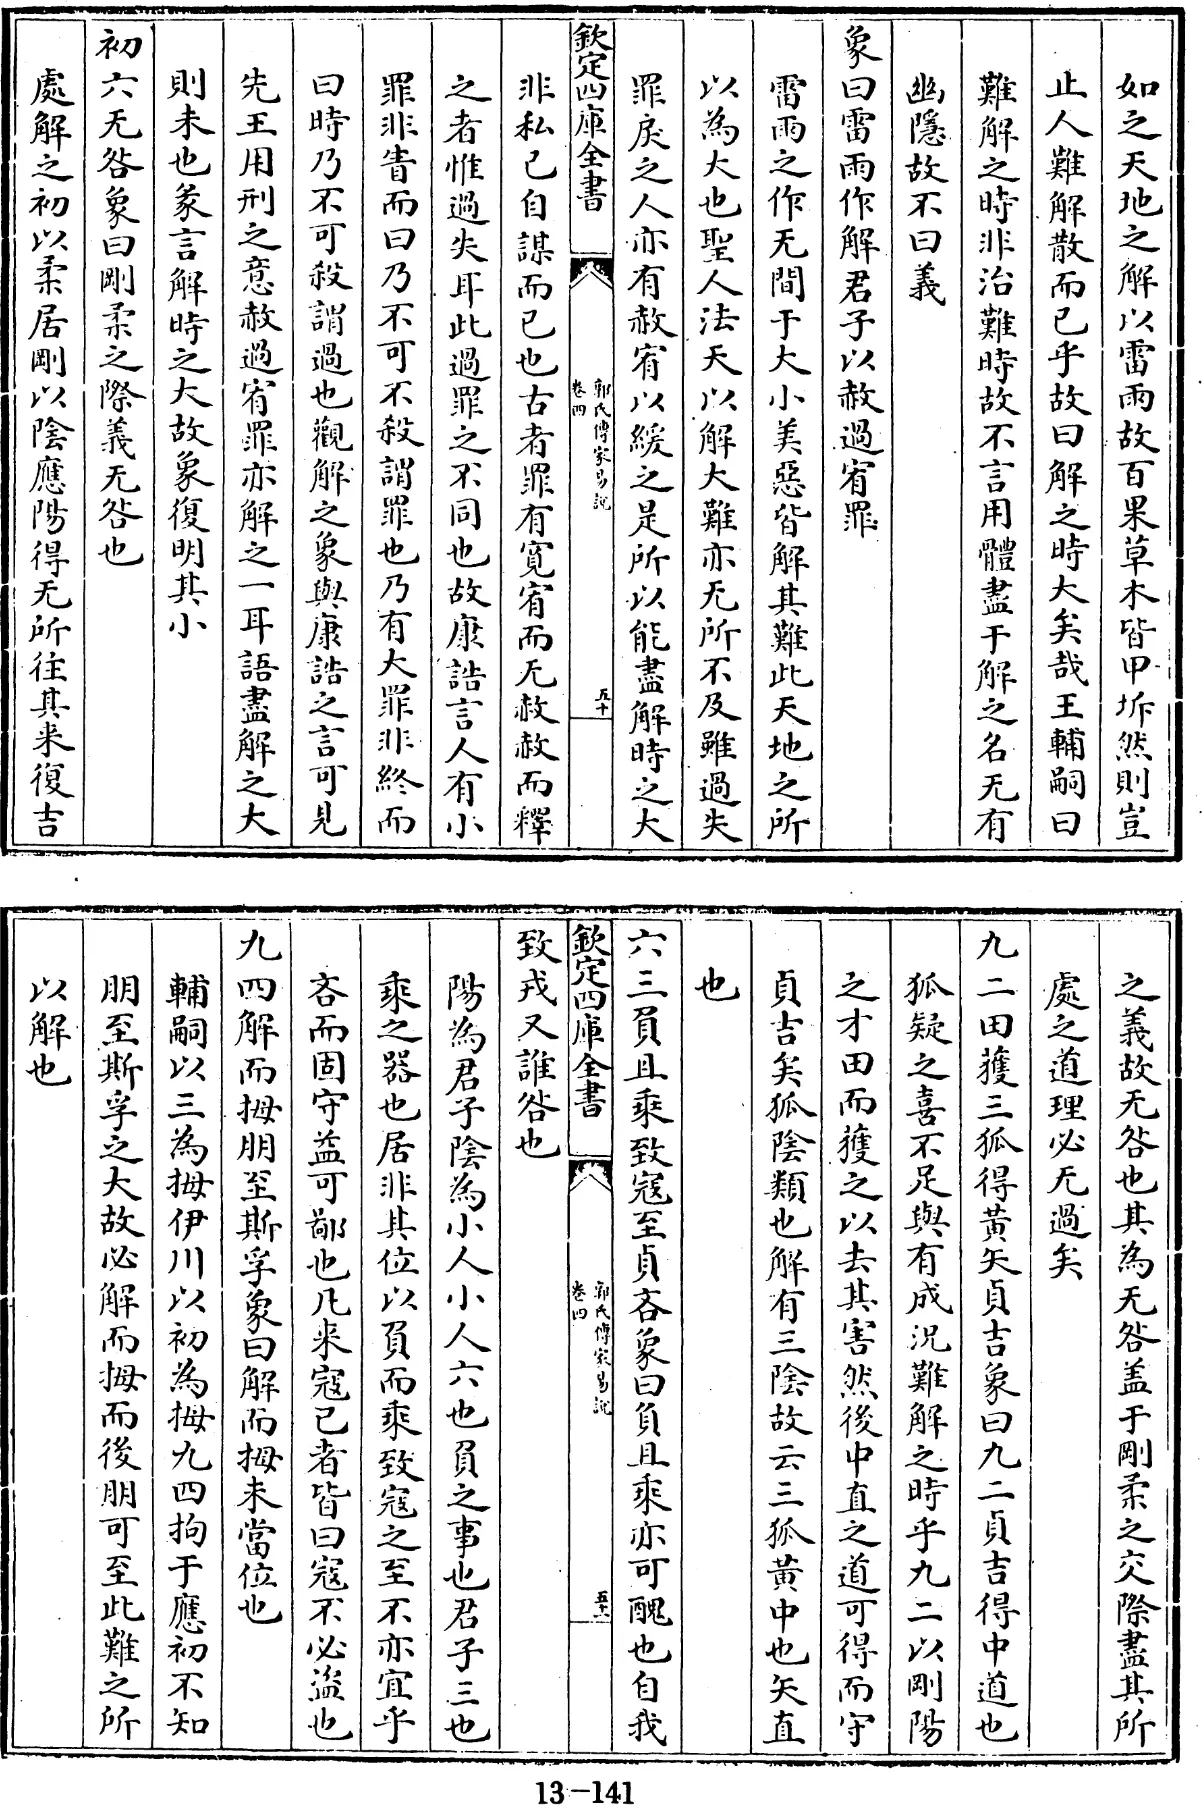 如之天地之解以雷雨故百果草木皆甲坼然則豈
止人難解散而已乎故曰解之時大矣哉王輔嗣曰
難解之時非治難時故不言用體盡于解之名无有
幽隱故不曰義
象曰雷雨作解君子以赦過宥罪
雷雨之作无間于大小美惡皆解其難此天地之所
以為大也聖人法天以解大難亦无所不及雖過失
罪戾之人亦有赦宥以緩之是所以能盡解時之大
欽定四庫全書
郭氏傳家易說
卷四
五十
非私已自謀而已也古者罪有寛宥而无赦赦而釋
之者惟過失耳此過罪之不同也故康誥言人有小
罪非眚而曰乃不可不殺謂罪也乃有大罪非終而
曰時乃不可殺謂過也觀解之象與康誥之言可見
先王用刑之意赦過宥罪亦解之一耳語盡解之大
則未也彖言解時之大故象復明其小
初六无咎象曰剛柔之際義无咎也
處解之初以柔居剛以陰應陽得无所往其来復吉
之義故无咎也其為无咎盖于剛柔之交際盡其所
處之道理必无過矣
九二田獲三狐得黃矢貞吉象曰九二貞吉得中道也
狐疑之喜不足與有成況難解之時乎九二以剛陽
之才田而獲之以去其害然後中直之道可得而守
貞吉矣狐陰類也解有三陰故云三狐黃中也矢直
也
六三負且乘致寇至貞吝象曰負且乘亦可醜也自我
欽定四庫全書
郭氏傳家易說
卷四
五十一
致戎又誰咎也
陽為君子陰為小人小人六也負之事也君子三也
乘之器也居非其位以負而乘致寇之至不亦宜乎
吝而固守益可鄙也凡来寇已者皆曰寇不必盜也
九四解而拇朋至斯孚象曰解而拇未當位也
輔嗣以三為拇伊川以初為拇九四拘于應初不知
朋至斯孚之大故必解而拇而後朋可至此難之所
以解也
13-141